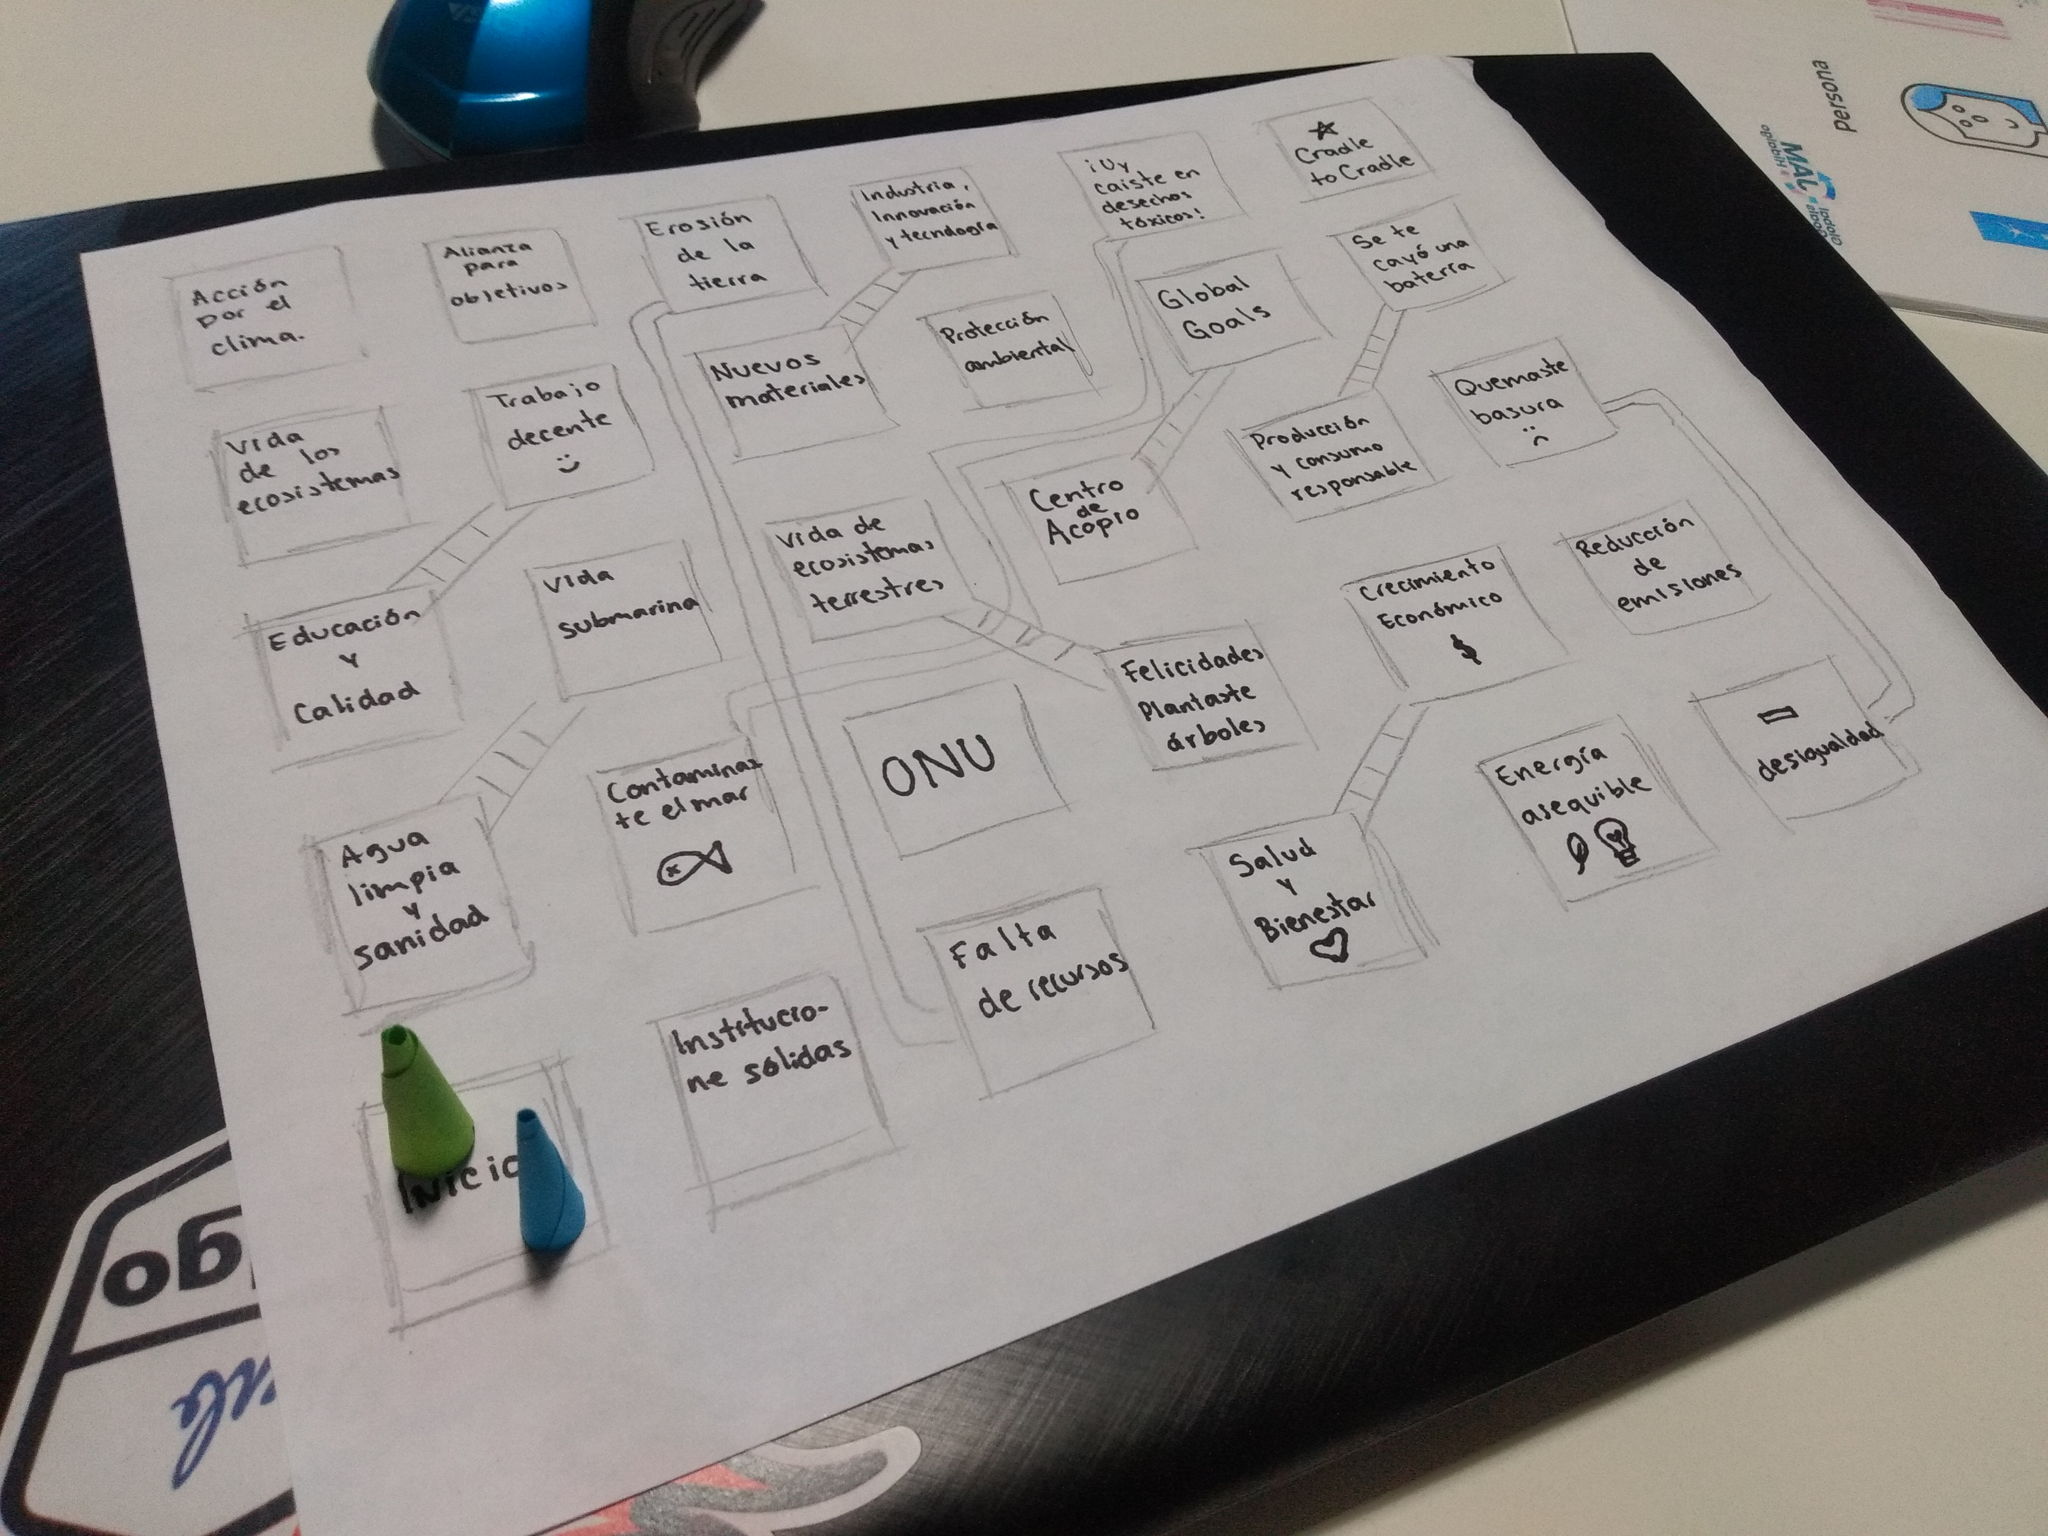 Acción
por el
clima.
Alianza
para
objetivos
Erosión
de la
tierra
Industria,
Innovación
y tecnología
¡Uy
caiste en
desechos
tóxicos!
Cradle
to Cradle
Vida
de los
ecosistemas
Trabajo
decente
Nuevos
materiales
Protección
ambiental
Global
Goals
Se te
cayó una
batería
Educación
y
Calidad
Vida
submarina
Vida de
ecosistemas
terrestres
Centro
de
Acopio
Producción
y consumo
responsable
Quemaste
basura
Agua
limpia
y
sanidad
Contaminas
te el mar
ONU
Felicidades
Plantaste
árboles
Crecimiento
Económico
$
Reducción
de
emisiones
Inicio
Institucio-
ne sólidas
Falta
de recursos
Salud
y
Bienestar
Energía
asequible
desigualdad
Persona